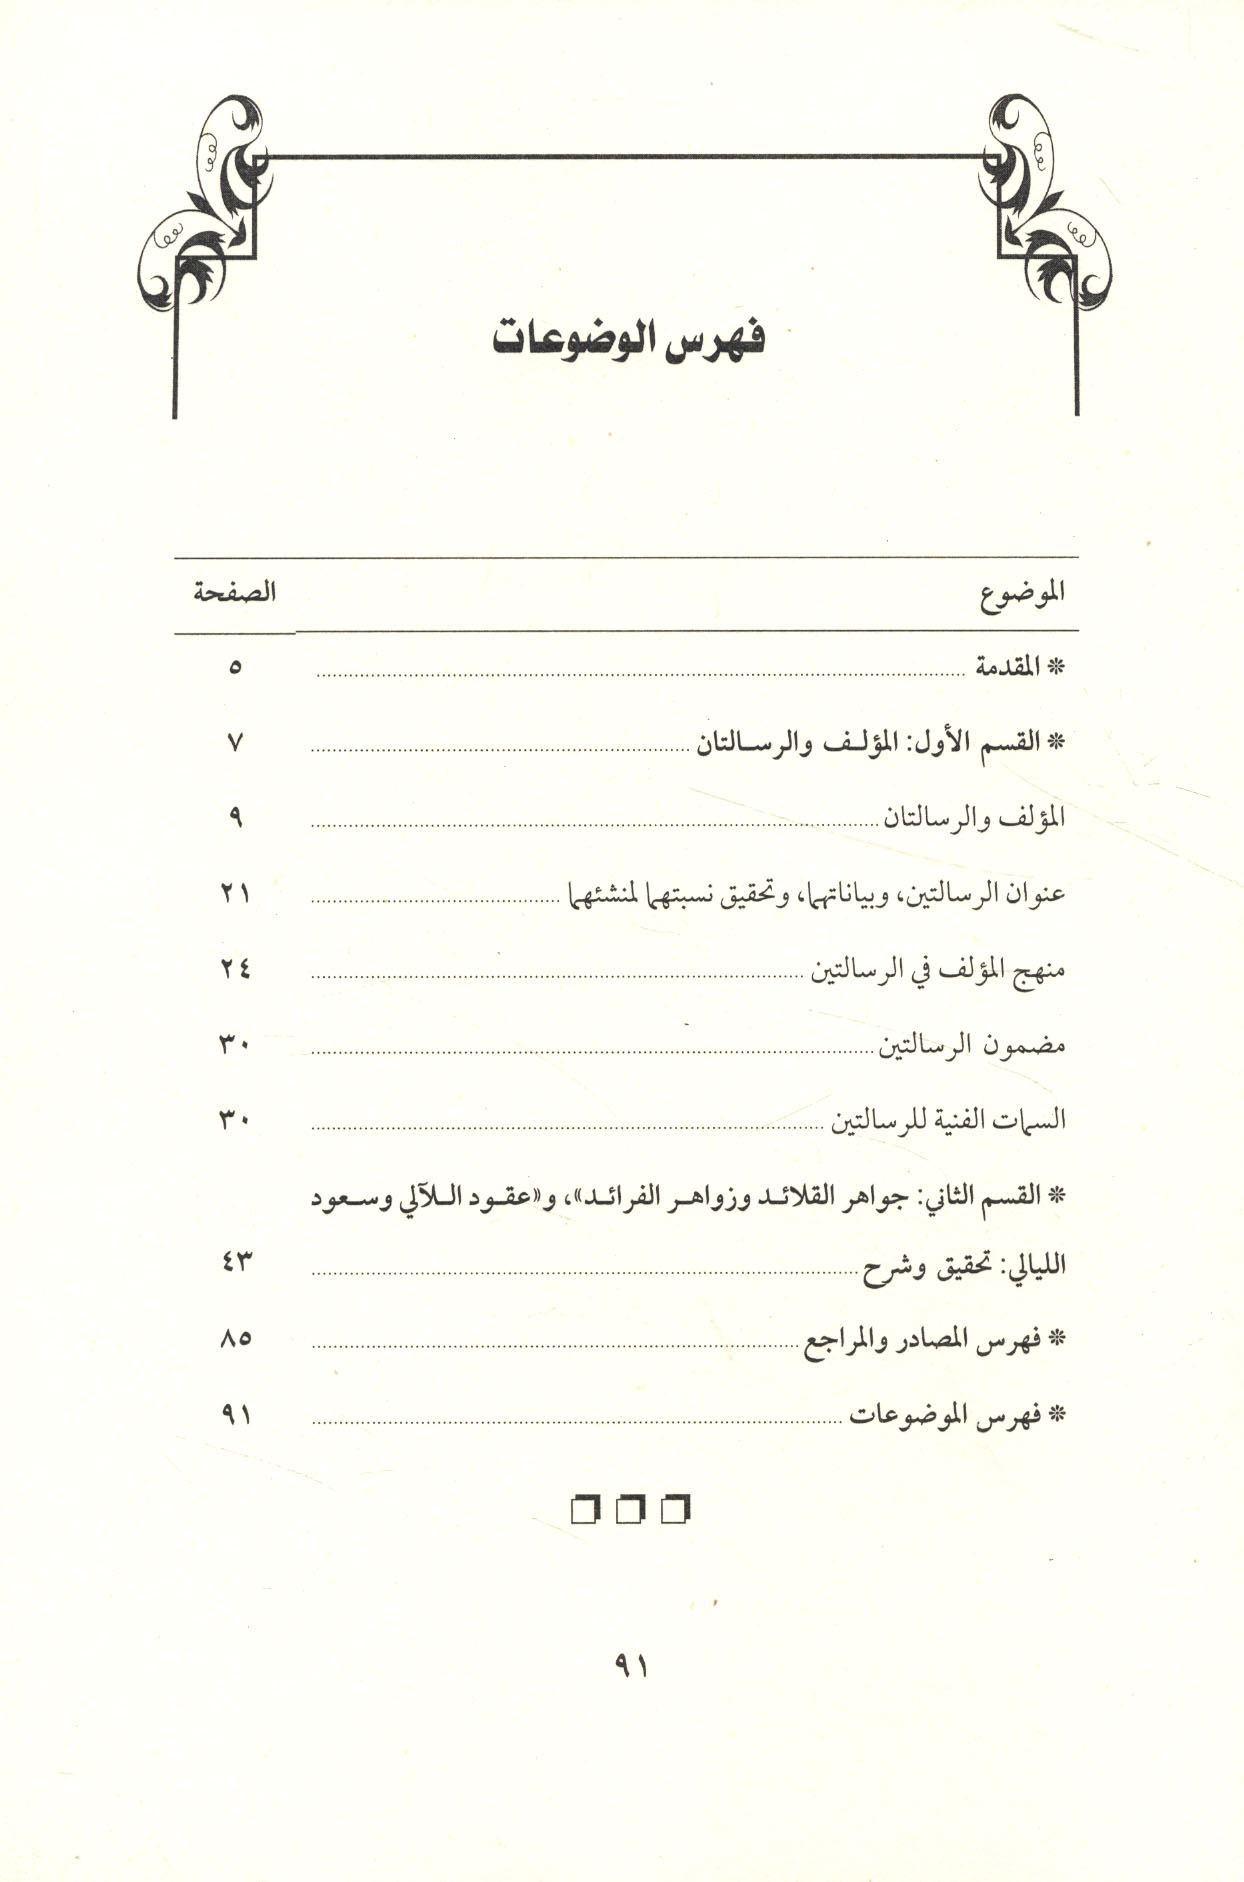 فهرس الوضوعات
الموضوع الصفحة
* المقدمة ٥
* القسم الأول: المؤلف والرسالتان ٧
المؤلف والرسالتان ٩
عنوان الرسالتين، وبياناتهما، وتحقيق نسبتهما لمنشئهما ٢١
منهج المؤلف في الرسالتين ٢٤
مضمون الرسالتين ٣٠
السمات الفنية للرسالتين ٣٠
* القسم الثاني: جواهر القلائد وزواهر الفرائد»، و«عقود اللآلي وسعود
الليالي: تحقيق وشرح ٤٣
* فهرس المصادر والمراجع ٨٥
* فهرس الموضوعات ٩١
٩١